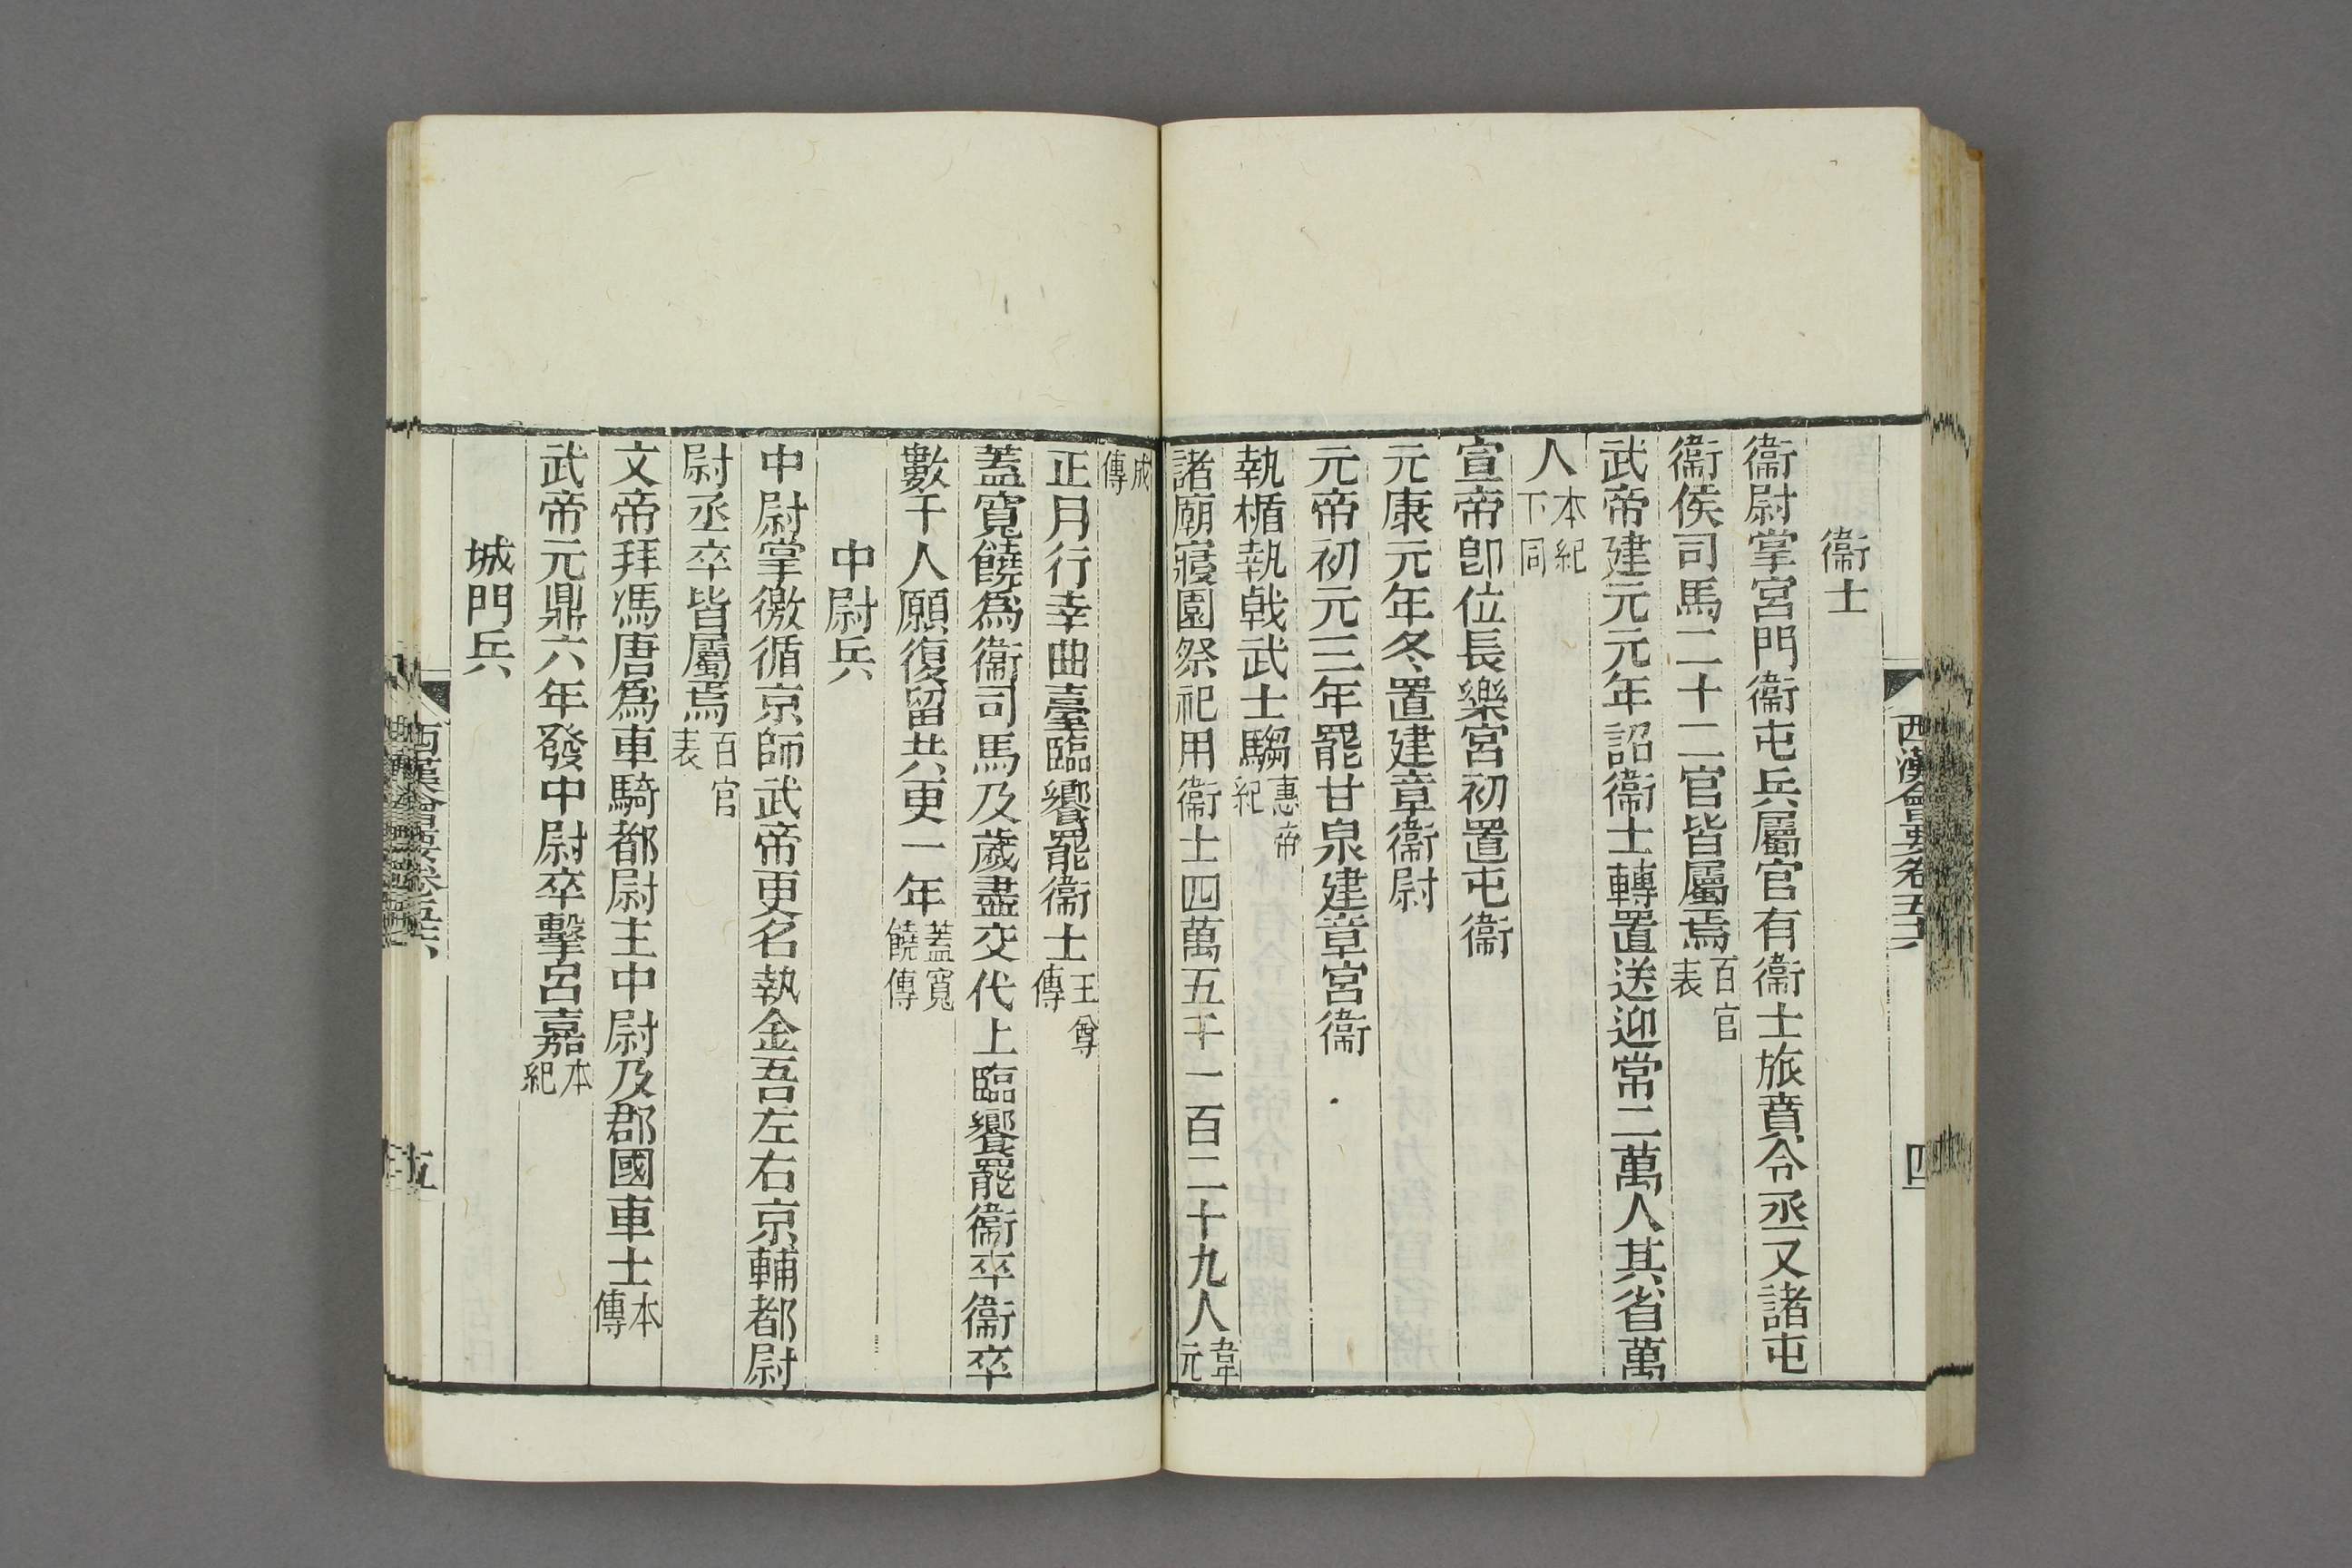 西漢會要卷五十六
四
衞士
衞尉掌宮門衞屯兵屬官有衞士旅賁令丞又諸屯
衞侯司馬二十二官皆屬焉百官表
武帝建元元年詔衞士轉置送迎常二萬人其省萬
人本紀下同
宣帝卽位長樂宮初置屯衞
元康元年冬置建章衞尉
元帝初元三年罷甘泉建章宮衞
執楯執戟武士騶惠帝紀
諸廟寢園祭祀用衞士四萬五千一百二十九人韋元
成傳
正月行幸曲臺臨饗罷衞士王尊傳
蓋寬饒爲衞司馬及歲盡交代上臨饗罷衞卒衞卒
數千人願復留共更一年蓋寬饒傳
中尉兵
中尉掌徼循京師武帝更名執金吾左右京輔都尉
尉丞卒皆屬焉百官表
文帝拜馮唐爲車騎都尉主中尉及郡國車士本傳
武帝元鼎六年發中尉卒擊呂嘉本紀
城門兵
西漢會要卷五十六
五